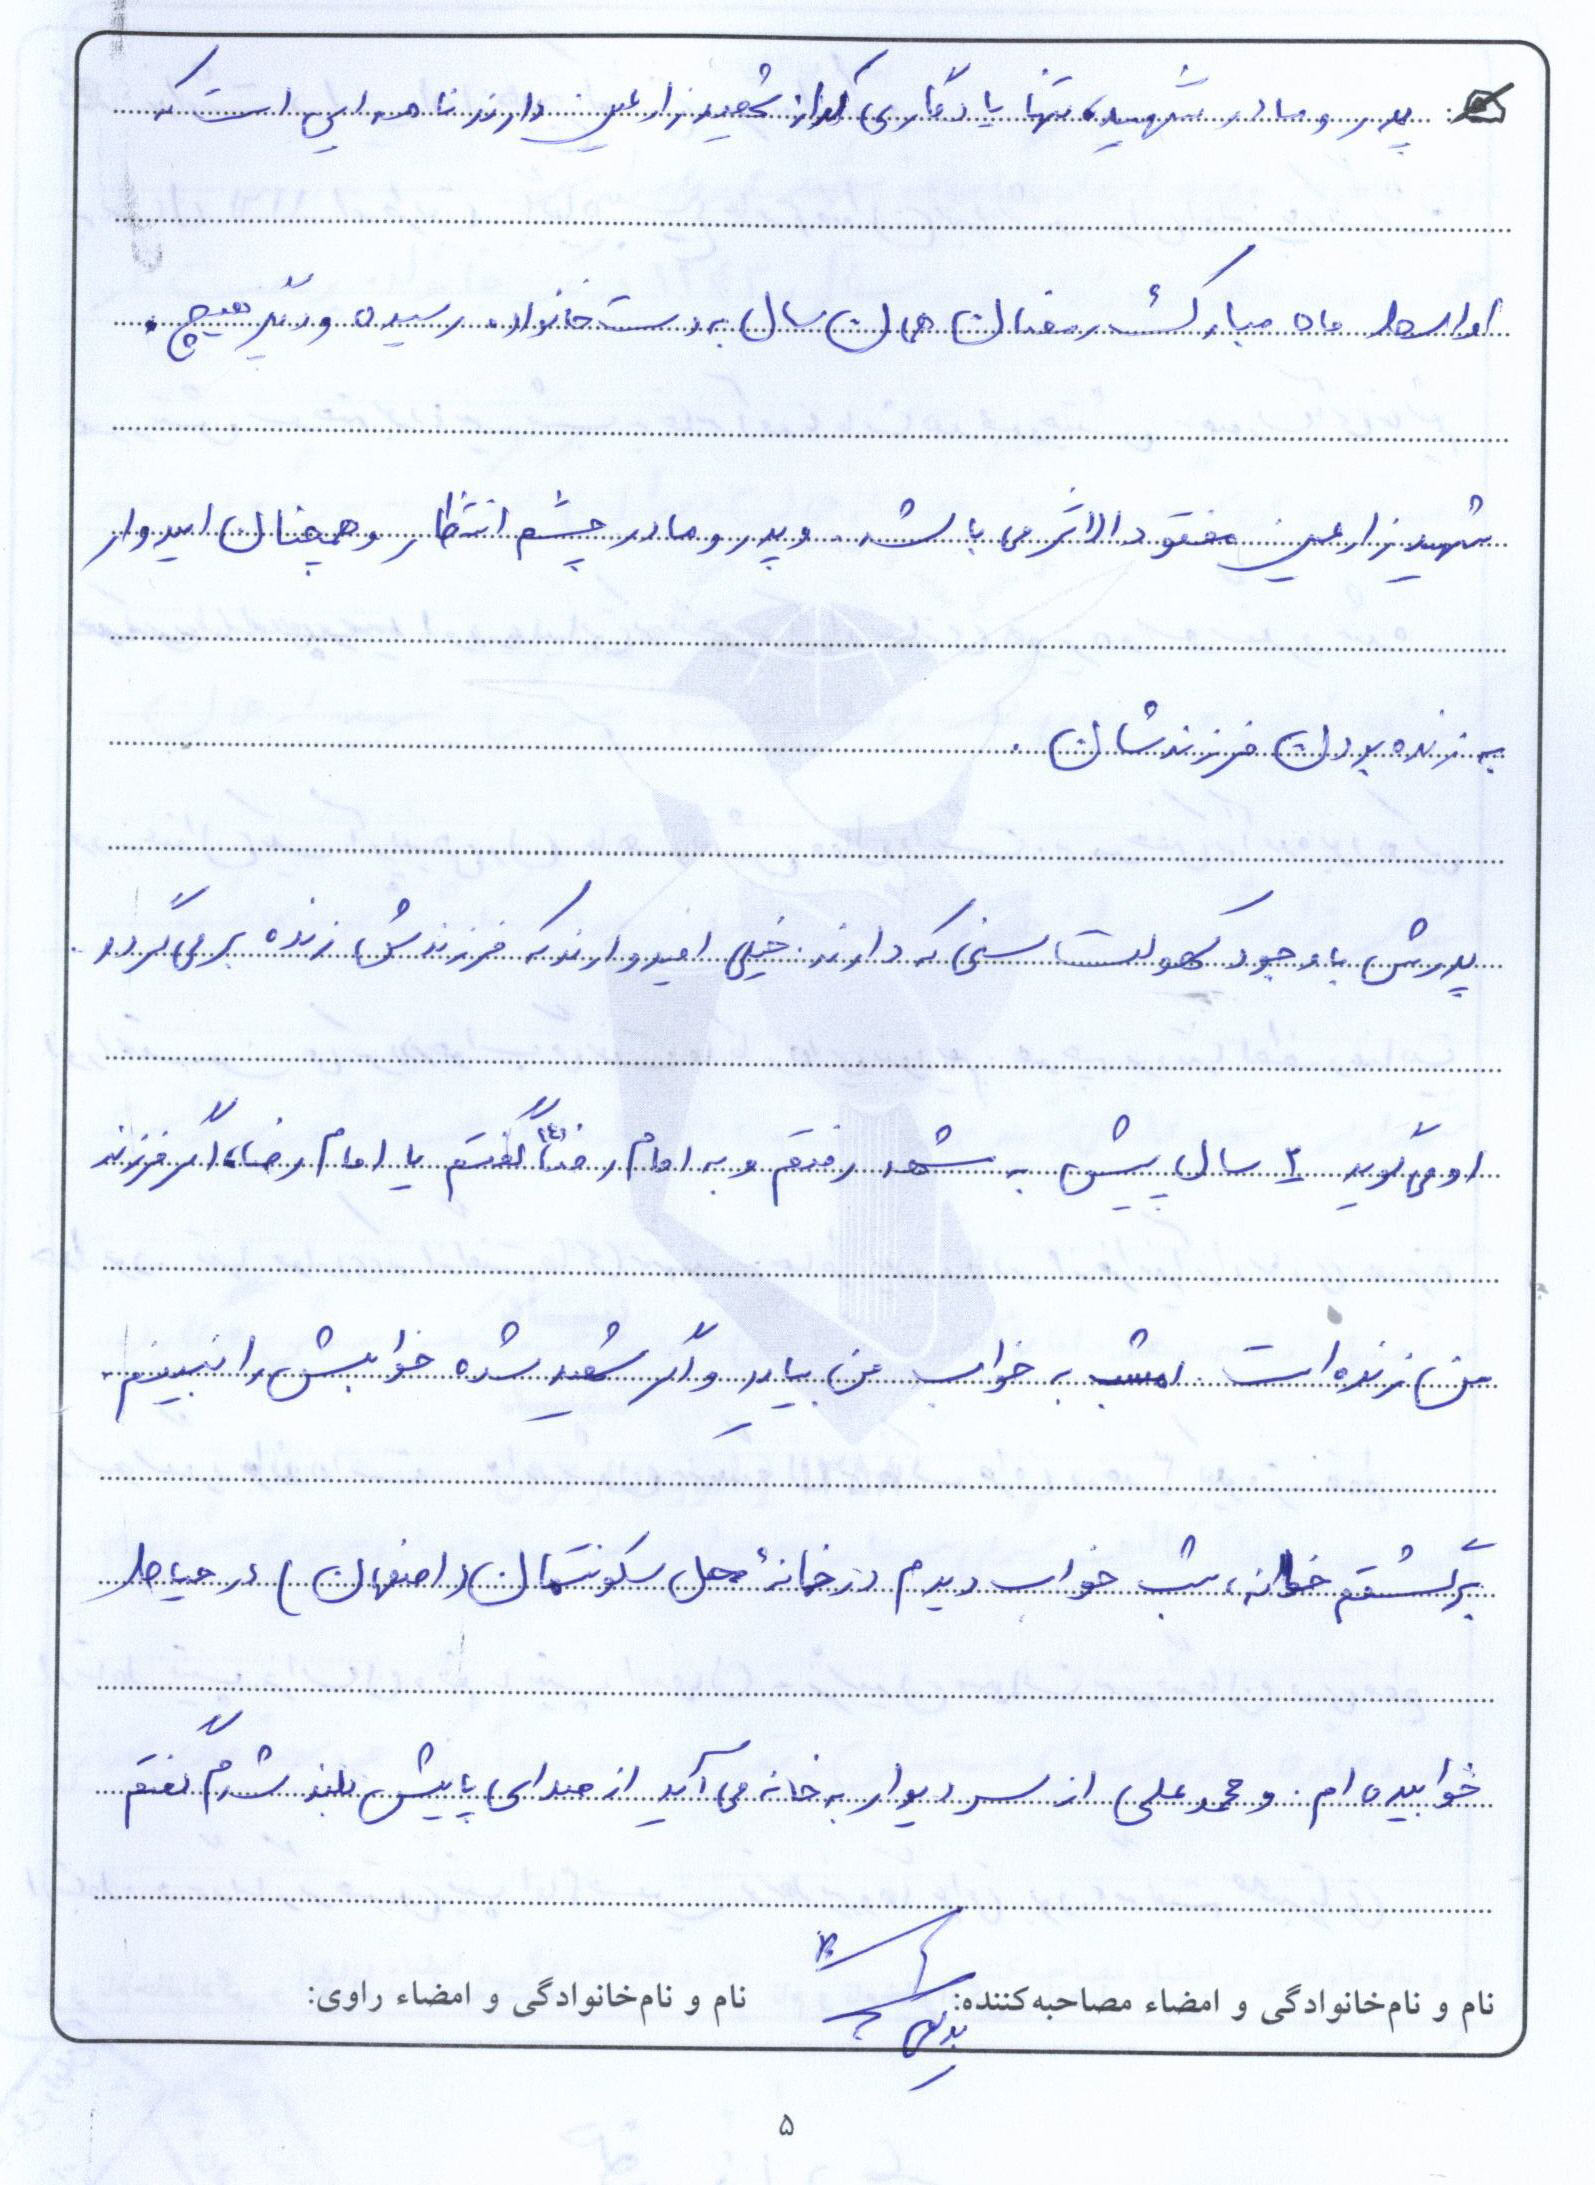 پدر و مادر شهید، تنها یادگاری که از شهید زارعین دارند نامه ایی است که
اواسط ماه مبارک رمضان همان سال به دست خانواده رسیده و دیگر هیچ.
شهید زارعین مفقودالاثر می باشد. و پدر و مادر چشم انتظار و همچنان امیدوار
به زنده بودن فرزندشان.
پدرش با وجود کهولت سنی که دارند. خیلی امیدوارند که فرزندش زنده بر می گردد.
او می گوید ۲ سال پیش به مشهد رفتم و به امام رضا (ع) گفتم یا امام رضا، اگر فرزند
من زنده است. امشب به خواب من بیاید و اگر شهید شده خوابش را نبینم.
برگشتم خانه، شب خواب دیدم در خانهٔ محل سکونتمان (اصفهان) در حیاط
خوابیده ام. و محمد علی از سر دیوار به خانه می آید از صدای پایش بلند شدم گفتم
نام و نام‌خانوادگی و امضاء مصاحبه‌کننده:
نام و نام‌خانوادگی و امضاء راوی:
۵